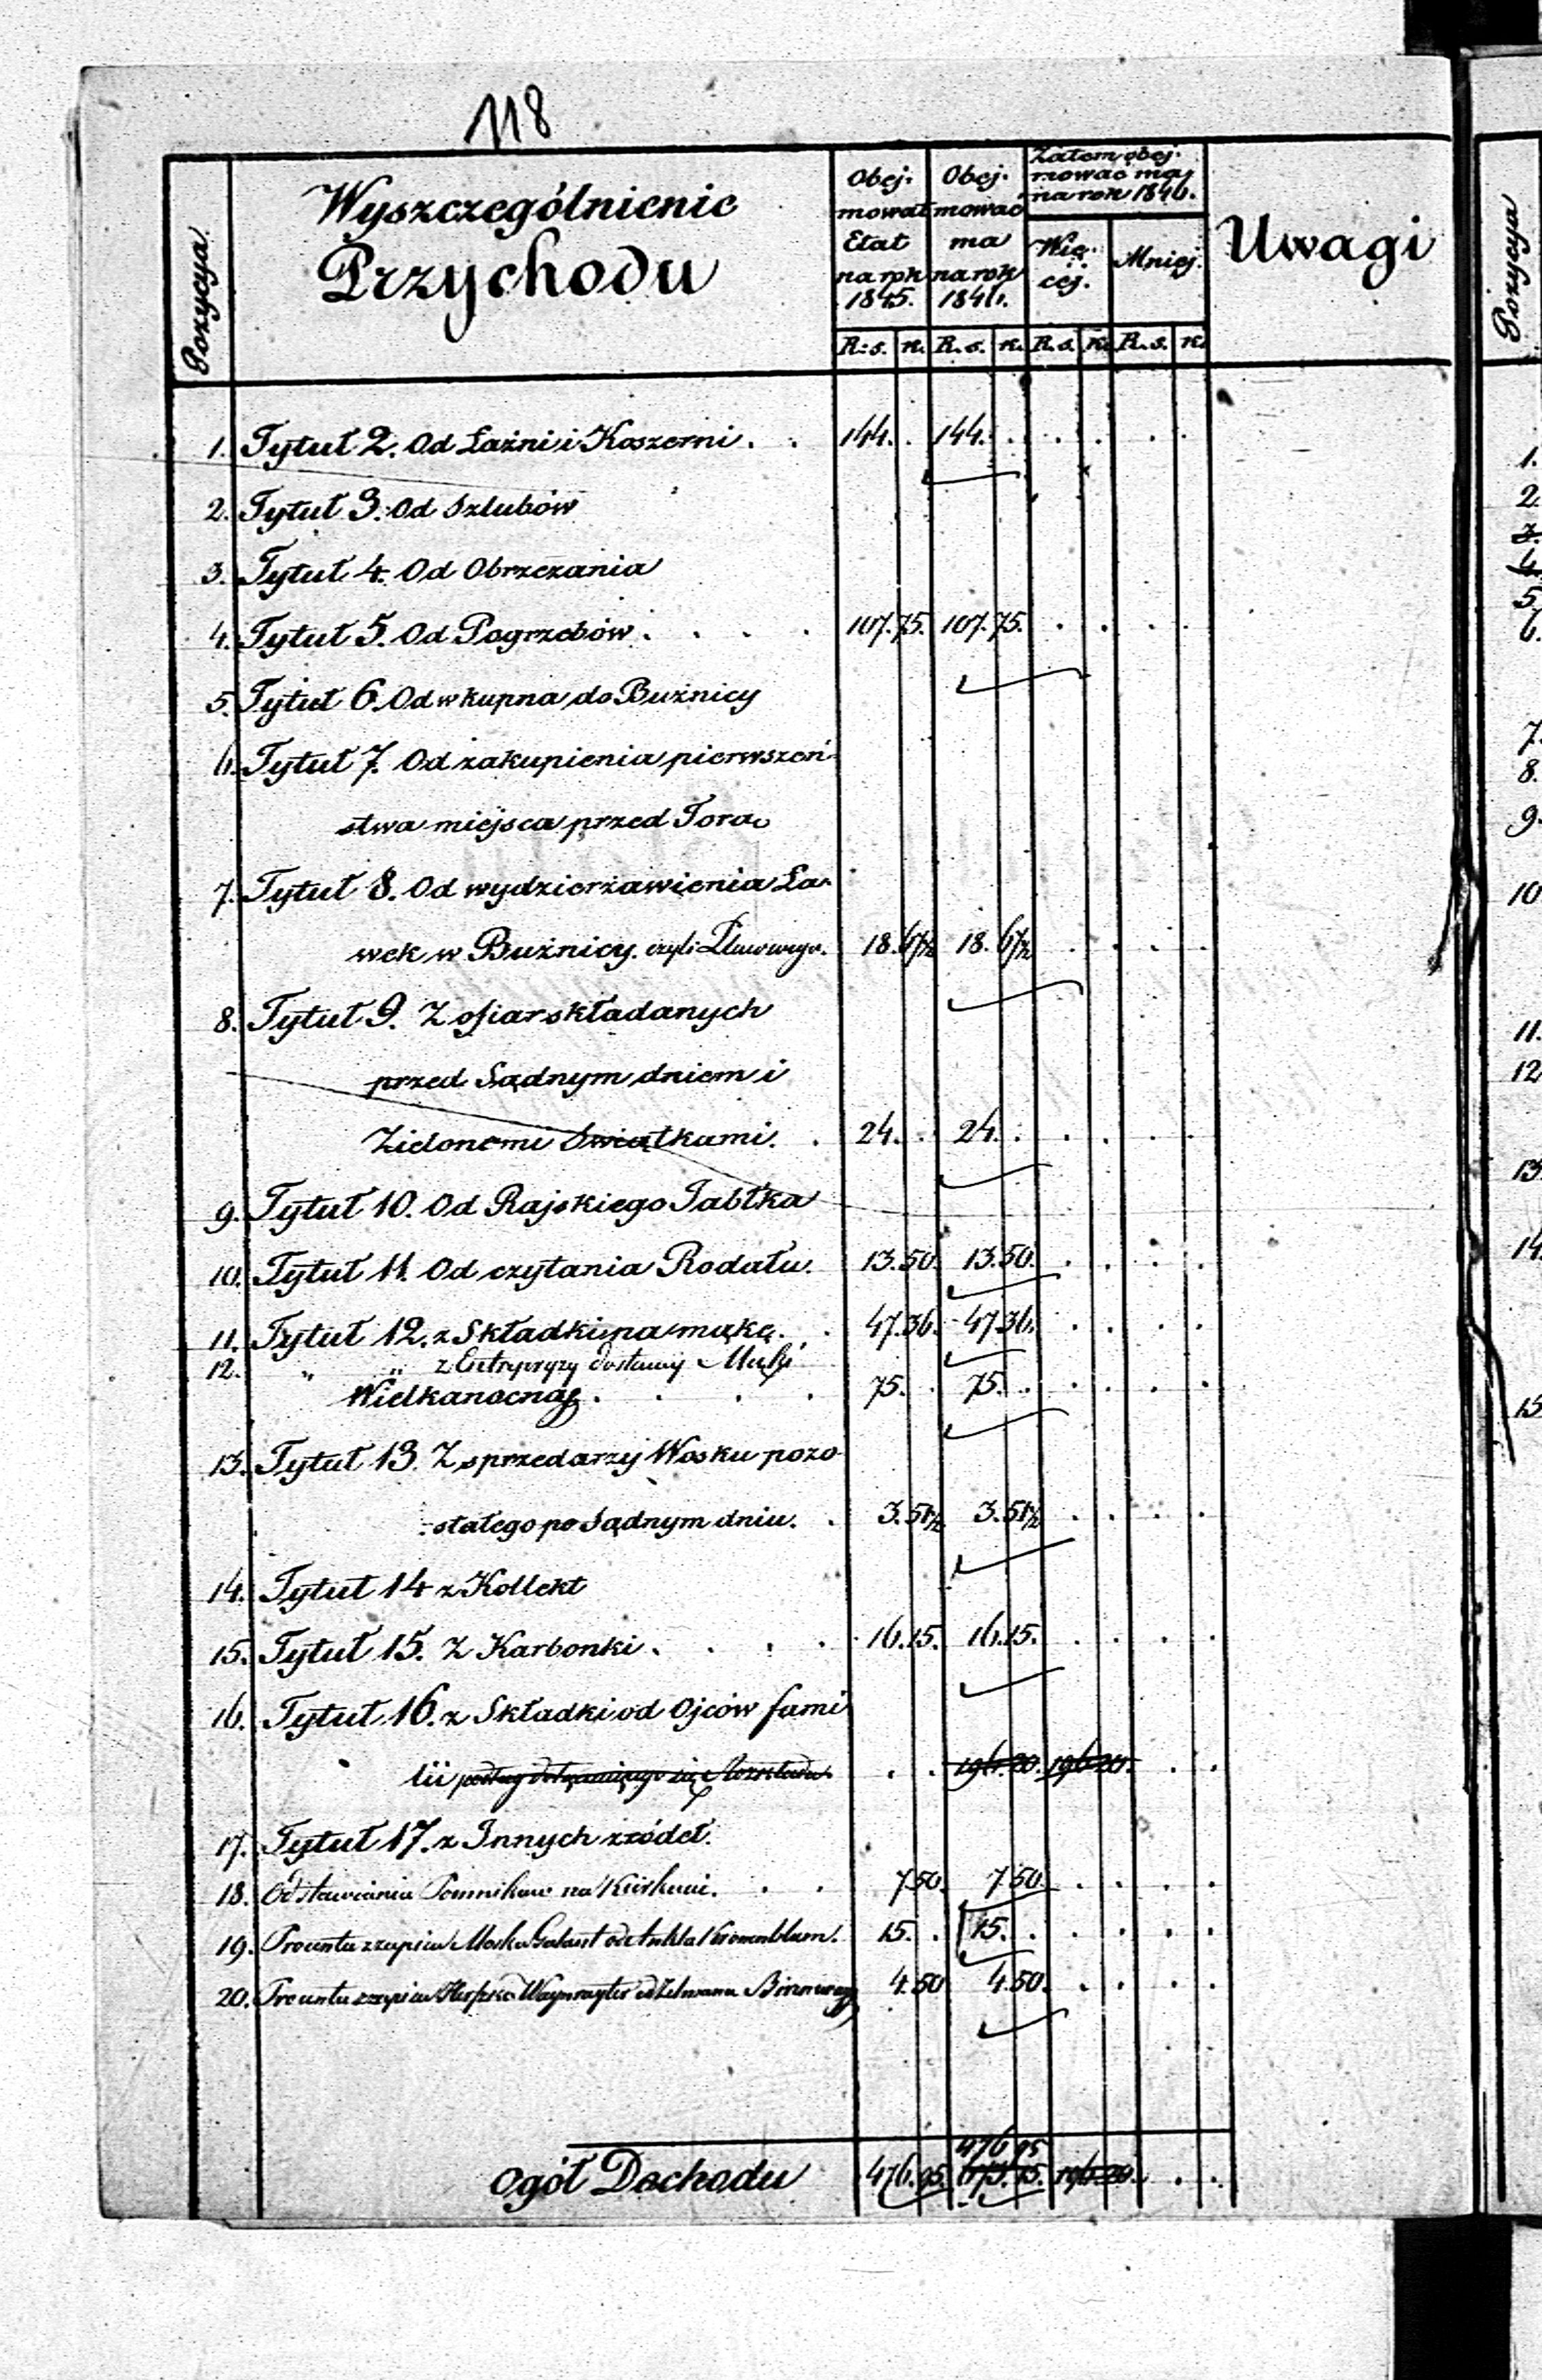 118
Pozycya
Wyszczególnienie
Przychodu
Obej-
mował
Etat
na rok
1845.
Obej-
mować
ma
na rok
1846.
Zatem obej-
mować ma
na rok 1846.
Wię-
cej.
Mniej.
Uwagi
R. s. k. R. s. k. R. s. k. R. s. k.
1. Tytuł 2. Od Łaźni i Koszerni . . 144. . 144. . . . . .
2. Tytuł 3. Od Szlubów
3. Tytuł 4. Od Obrzezania
4. Tytuł 5. Od Pogrzebów . . . . 107. 75. 107. 75. . . . .
5. Tytuł 6. Od wkupna do Bużnicy
6. Tytuł 7. Od zakupienia pierwszeń-
stwa miejsca przed Torą
7. Tytuł 8. Od wydzierżawienia Ła-
wek w Bużnicy czyli 18. 67½ 18. 67½ . . . .
8. Tytuł 9. Z ofiar składanych
przed Sądnym dniem i
Zielonemi Swiątkami. . 24. . 24. . . . . .
9. Tytuł 10. Od Rajskiego Jabłka
10. Tytuł 11. Od czytania Rodału. 13. 50. 13. 50. . . . .
11. Tytuł 12. z Składki na mąkę . . 47. 36. 47. 36. . . . .
12. " " z Entrepryzy dostawy Mąki
Wielkanocnej . . . . 75. . 75. . . . . .
13. Tytuł 13. Z sprzedarzy Wosku pozo-
stałego po Sądnym dniu. . 3. 51½ 3. 51½ . . . .
14. Tytuł 14 z Kollekt
15. Tytuł 15. Z Karbonki . . . . 16. 15. 16. 15. . . . .
16. Tytuł 16. z Składki od Ojców fami
lii podług dołączającego się Rozkładu . . 196. 20. 196. 20. . .
17. Tytuł 17. z Innych źródeł.
18. Od stawiania Pomników na Kirkucie. . . 7. 50. 7. 50. . . . .
19. Procentu z zapisu Moska Galant od 15. . 15. . . . . .
20. Procentu z zapisu Herszka od Zelmana 4. 50 4. 50. . . . .
476 95
Ogół Dochodu 476. 95. 673. 15. 196. 20. . .
Pozycya
1.
2.
3.
4.
5.
6.
7.
8.
9.
10
11.
12
13.
14.
15